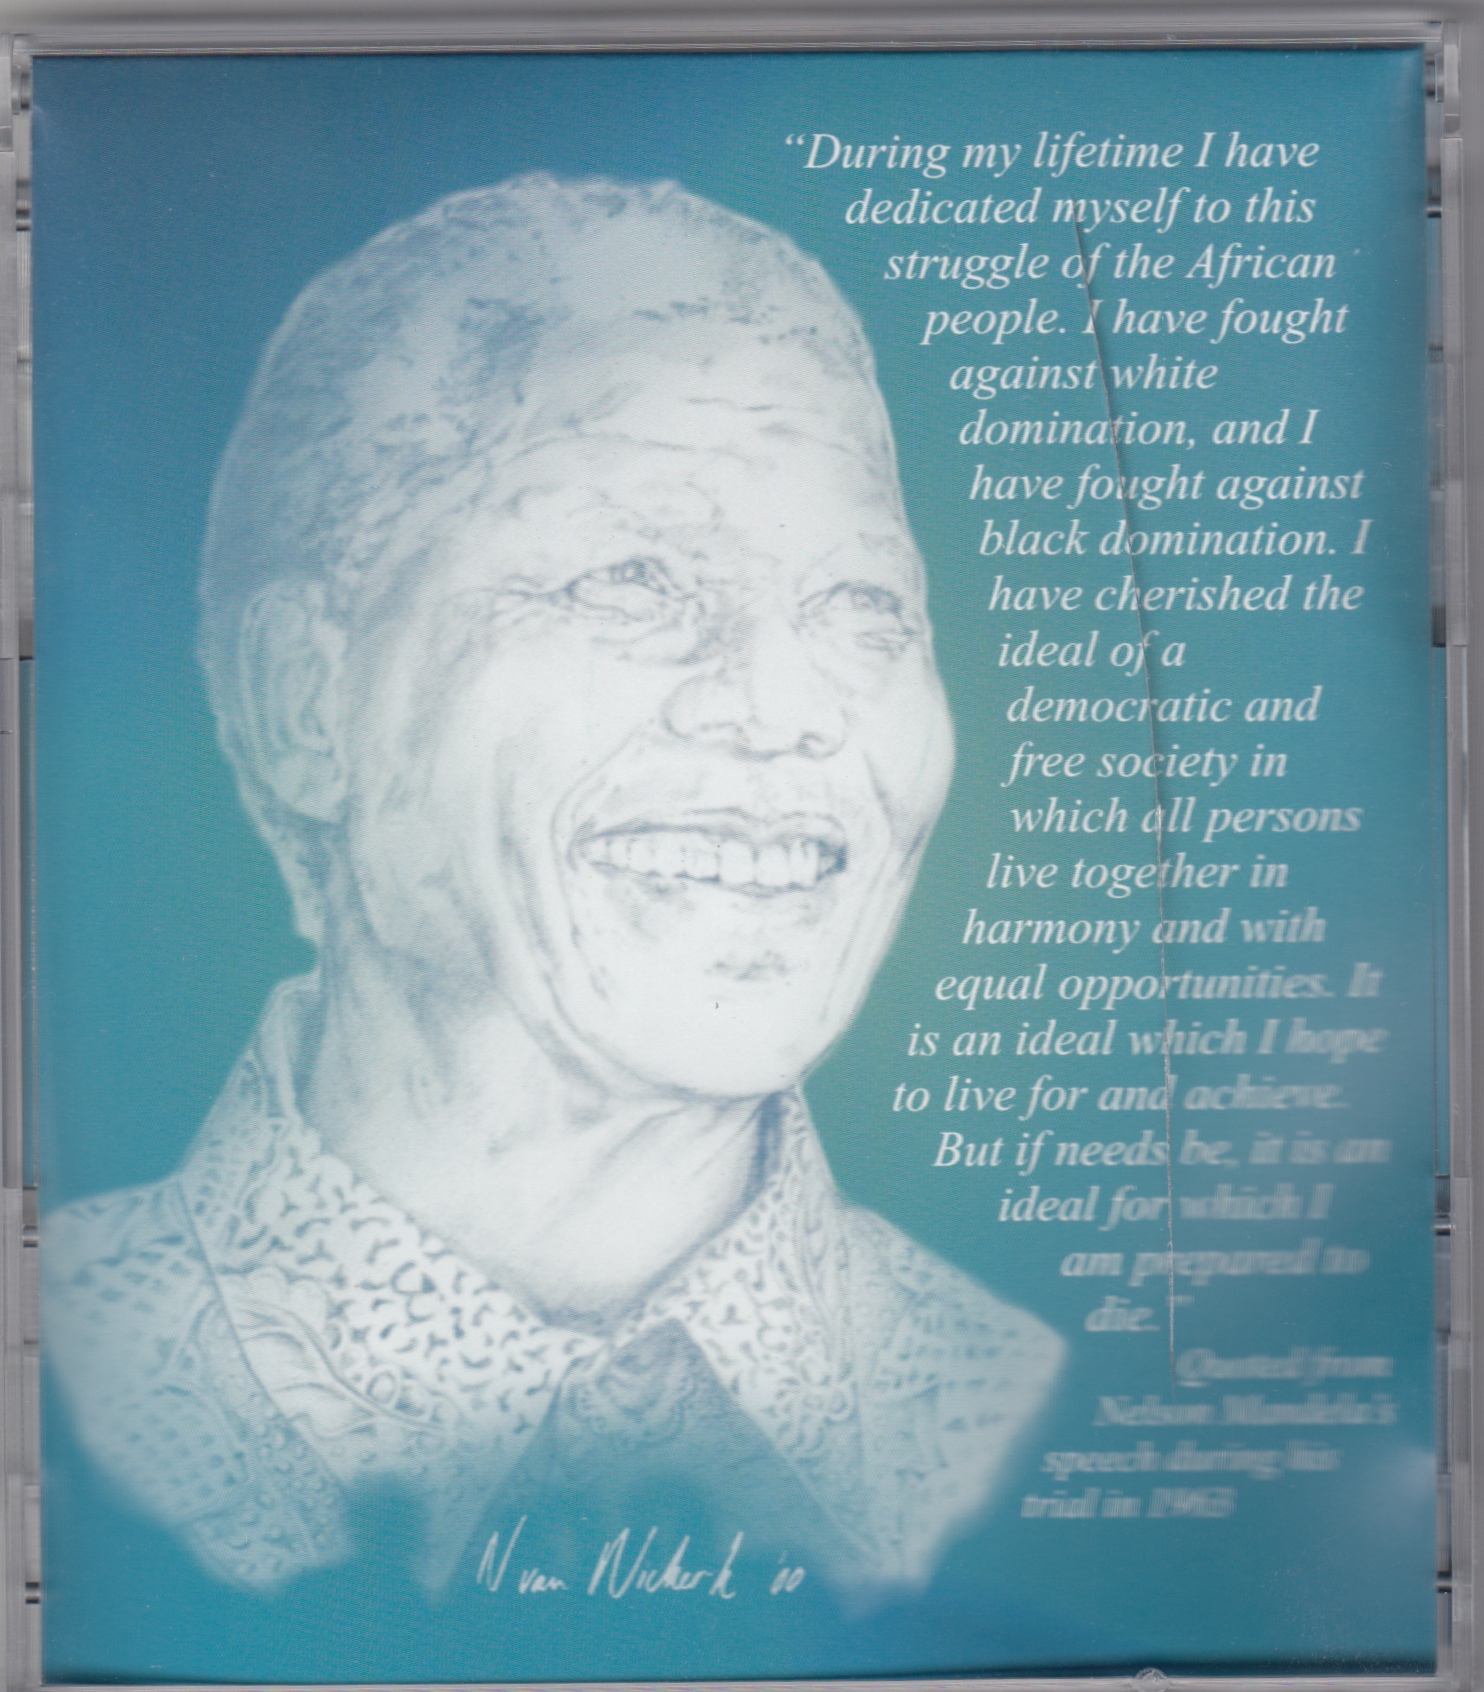 “During my lifetime I have
dedicated myself to this
struggle of the African
people. I have fought
against white
domination, and I
have fought against
black domination. I
have cherished the
ideal of a
democratic and
free society in
which all persons
live together in
harmony and with
equal opportunities. It
is an ideal which I hope
to live for and achieve.
But if needs be, it is an
ideal for which I
am prepared to
die.”
Quoted from
Nelson Mandela's
speech during his
trial in 1963
N van Niekerk '00